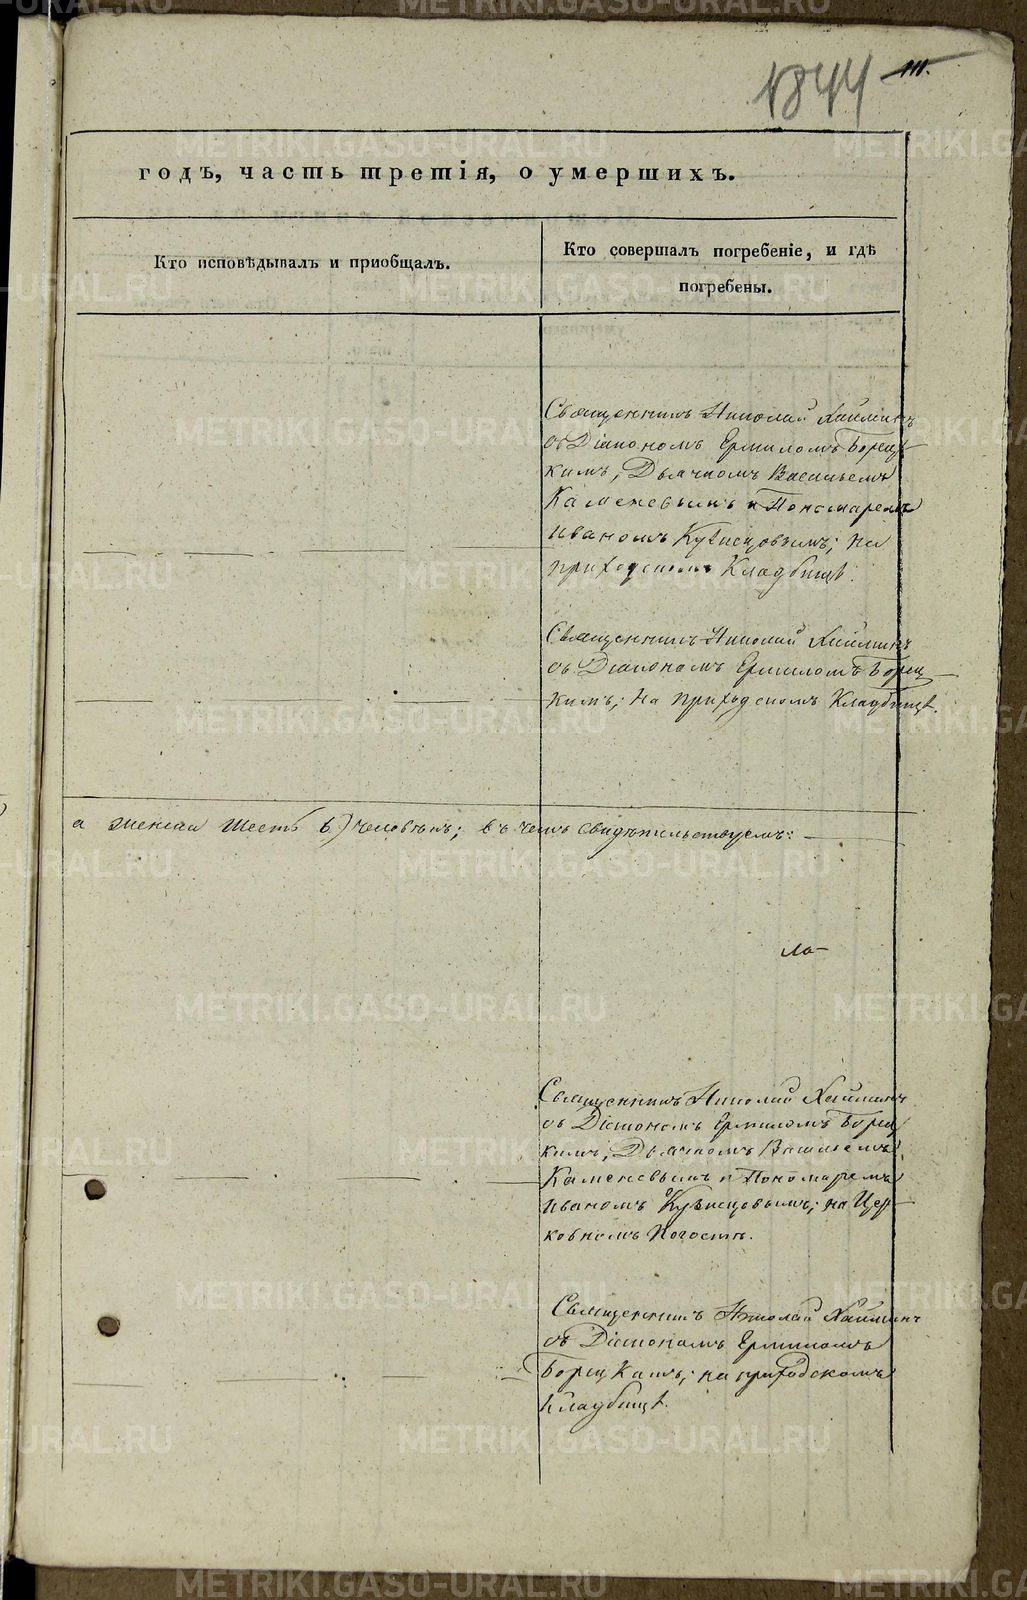 1844 111.
годъ, часть третія, о умершихъ.
Кто исповѣдывалъ и пріобщалъ.
Кто совершалъ погребеніе, и гдѣ
погребены.
Священникъ Николай Хайминъ
съ Діакономъ Ермиломъ Борец-
кимъ, Дьячкомъ Васильемъ
Каменевымъ и Пономаремъ
Иваномъ Кузнецовымъ; на
приходскомъ Кладбищѣ.
Священникъ Николай Хайминъ
съ Діакономъ Ермиломъ Борец-
кимъ; на приходскомъ Кладбищѣ.
а женска шесть 6) человѣкъ; въ чемъ свидѣтельствуемъ:
ла-
Священникъ Николай Хайминъ
съ Діакономъ Ермиломъ Борец-
кимъ, Дьячкомъ Васильемъ
Каменевымъ и Пономаремъ
Иваномъ Кузнецовымъ; на Цер-
ковномъ Погостѣ.
Священникъ Николай Хайминъ
съ Діакономъ Ермиломъ
Борецкимъ; на приходскомъ
Кладбищѣ.
METRIKI.GASO-URAL.RU